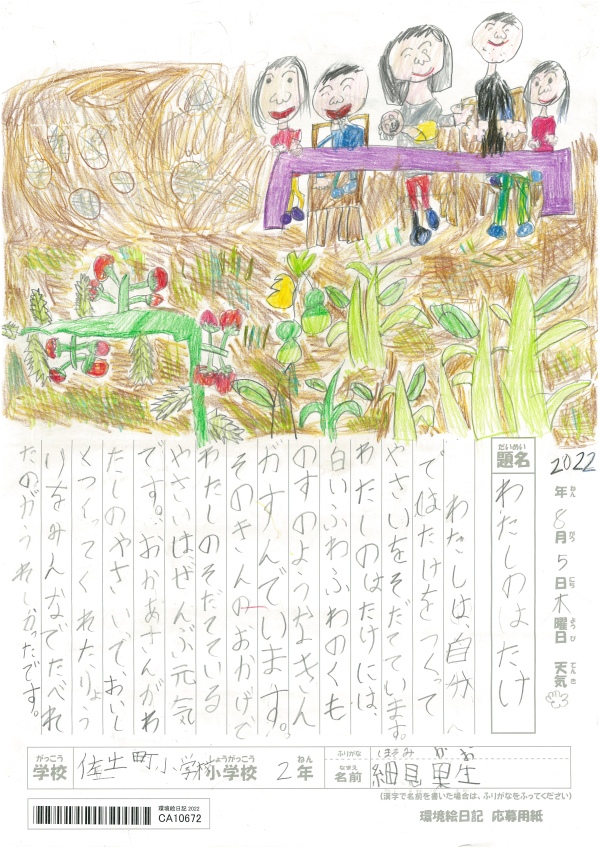 2022年8月5日木曜日 天気
ねん がつ にち ようび てんき
だいめい
題名
わたしのはたけ
わたしは、自分
ではたけをつくって
やさいをそだてています。
わたしのはたけには、
白いふわふわのくも
のすのようなきん
がすんでいます。
そのきんのおかげで
わたしのそだてている
やさいはぜんぶ元気
です。おかあさんがわ
たしのやさいで、おいし
くつくってくれたりょう
りをみんなでたべれ
たのがうれしかったです。
がっこう しょうがっこう ねん
学校 土町小学校 小学校 2年
ふりがな ほそみ かお
なまえ
名前 細見果生
(漢字で名前を書いた場合は、ふりがなをふってください)
環境絵日記 2022
CA10672
環境絵日記 応募用紙